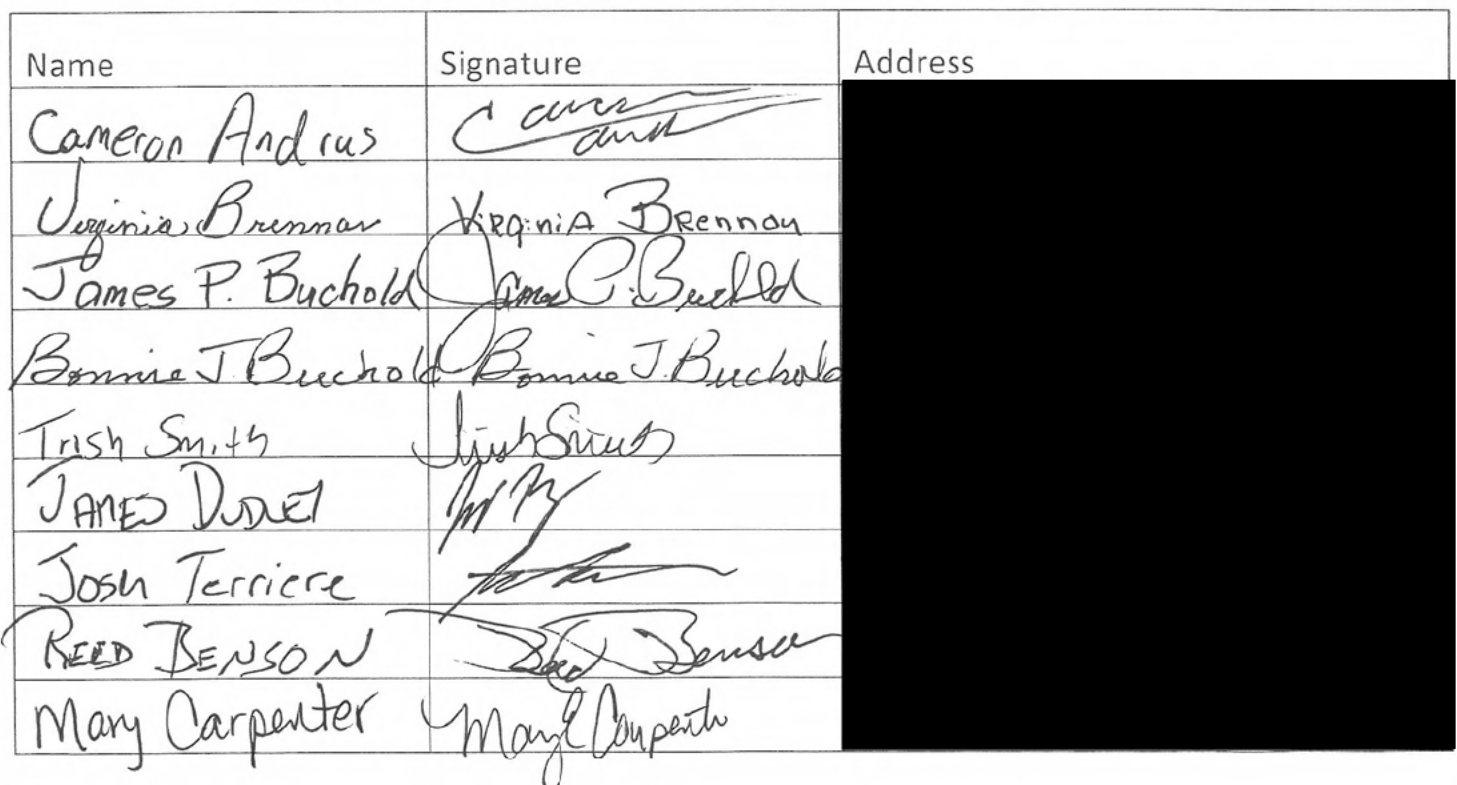 Name Signature Address
Cameron Andrus
Virginia Brennan Virginia Brennan
James P. Buchold James P. Buchold
Bonnie J Buchold Bonnie J. Buchold
Trish Smith Trish Smith
James Dudley
Josh Terriere
Reed Benson Reed Benson
Mary Carpenter Mary E Carpenter